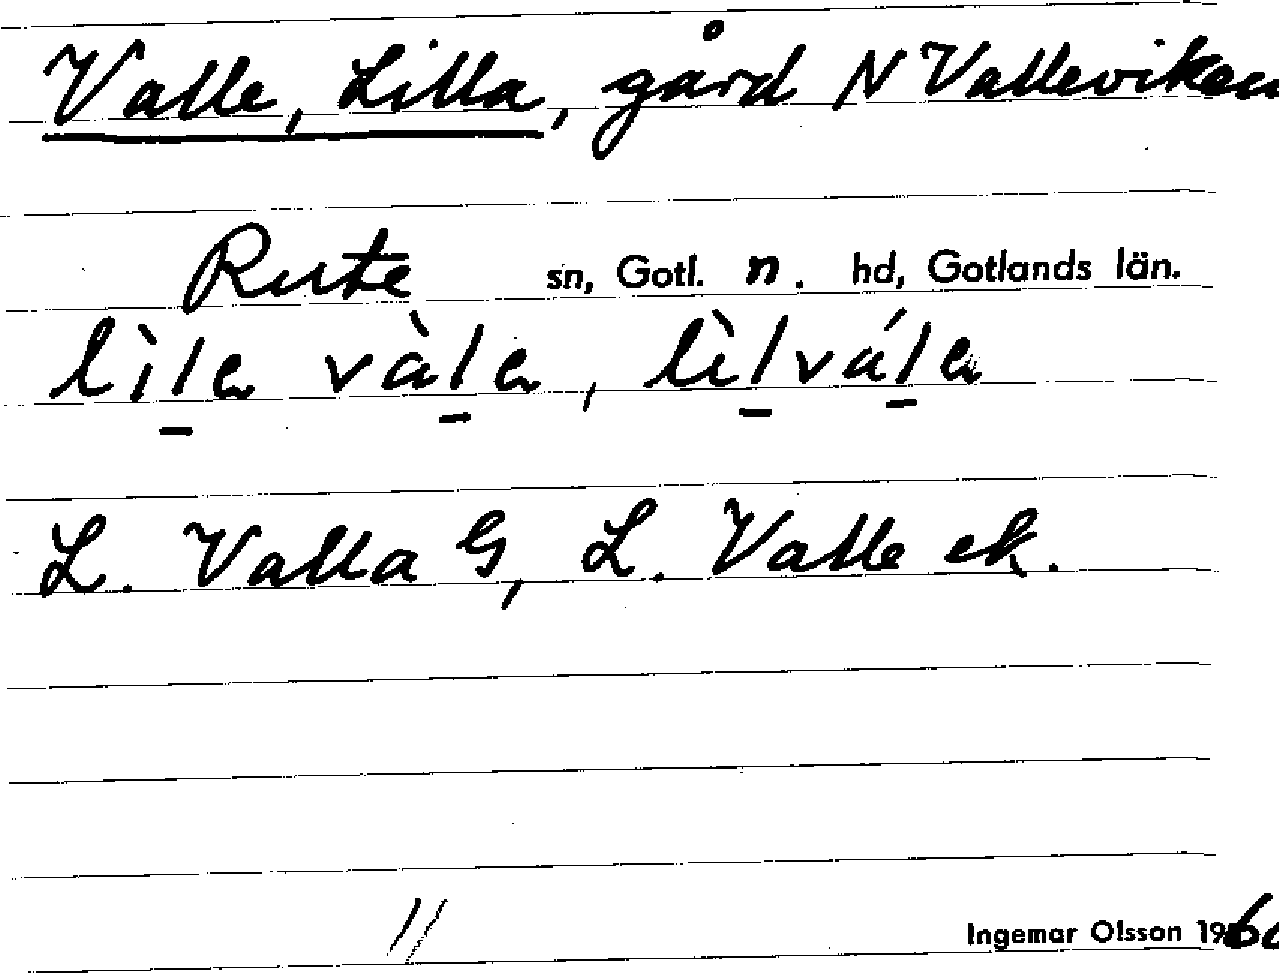 Valle, Lilla, gård N Valleviken
Rute sn, Gotl. n. hd, Gotlands län.
lìl̠a vàl̠a, lìl̠vál̠a
L. Valla G, L. Valle ek.
Ingemar Olsson 19